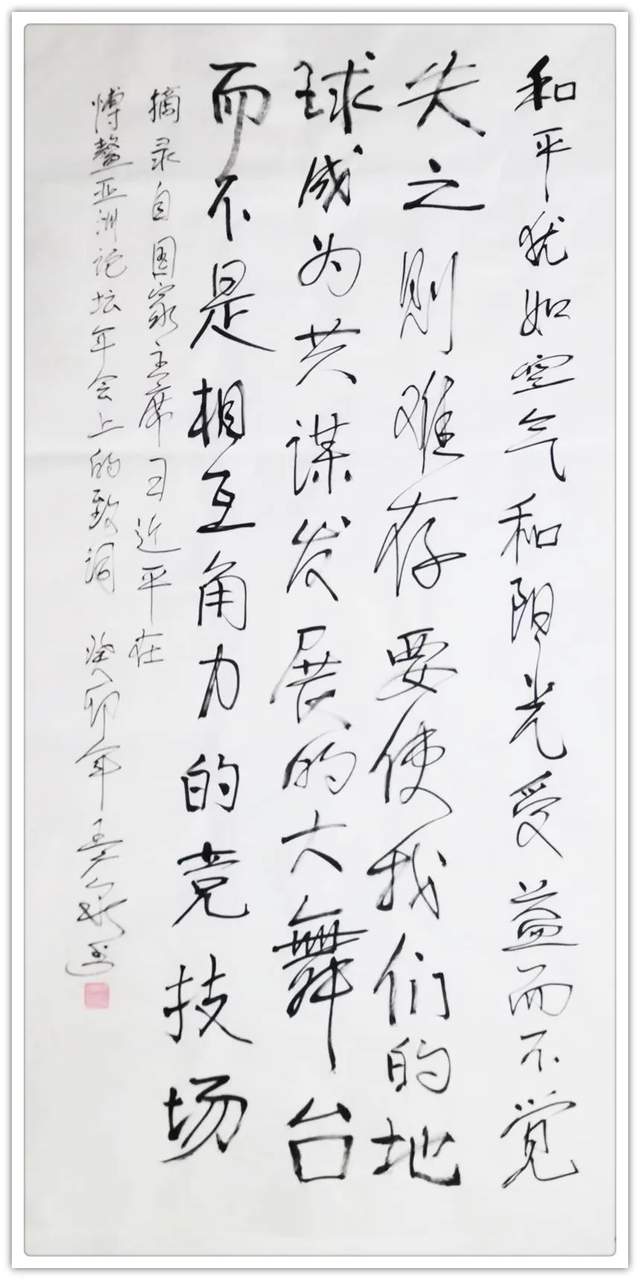 和平犹如空气和阳光受益而不觉
失之则难存要使我们的地
球成为共谋发展的大舞台
而不是相互角力的竞技场
摘录自国家主席习近平在
博鳌亚洲论坛年会上的致词 癸卯年